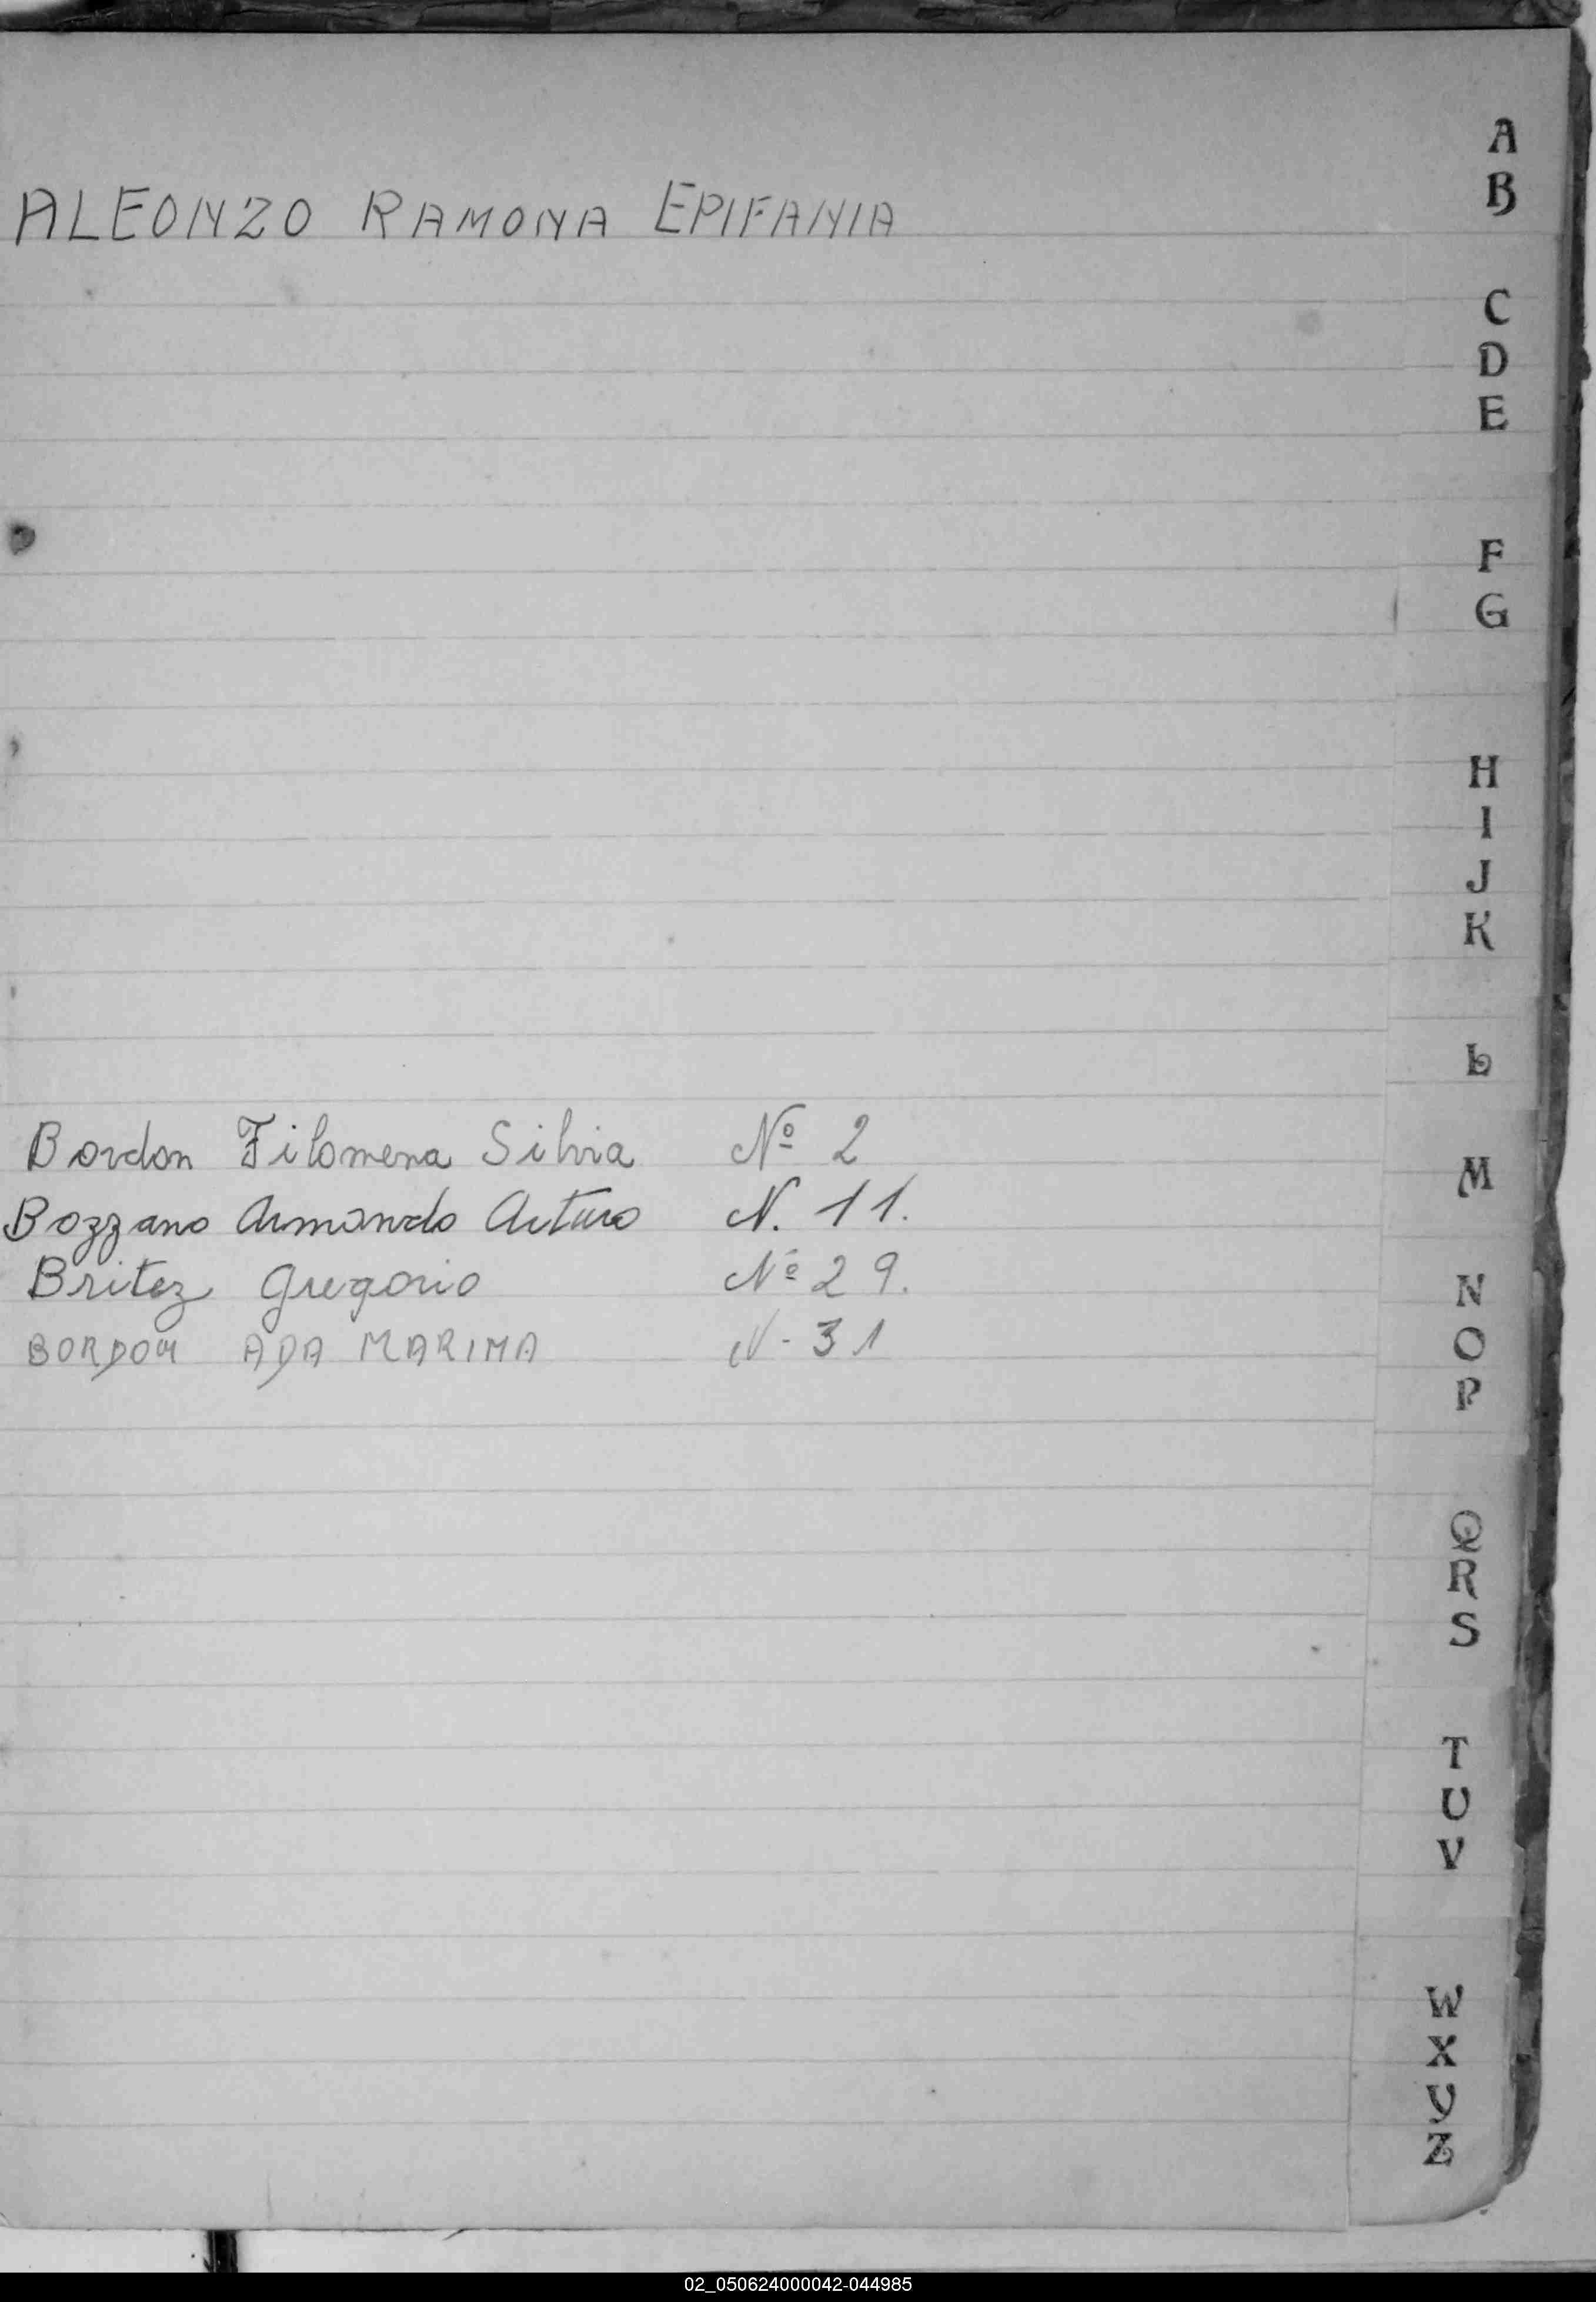 ALEONZO RAMONA EPIFANIA
Bordon Filomena Silvia Nº 2
Bozzano Armando Arturo N. 11.
Britez Gregorio Nº 29.
BORDON ADA MARINA N- 31
A
B
C
D
E
F
G
H
I
J
K
L
M
N
O
P
Q
R
S
T
U
V
W
X
Y
Z
02_050624000042-044985